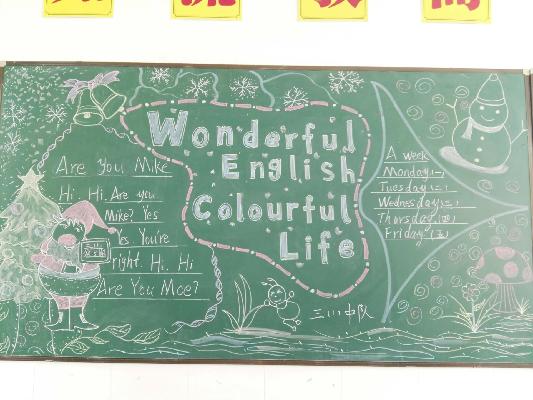 Wonderful
English
Colourful
Life
Are You Mike
Hi. Hi. Are you
Mike? Yes
Yes You're
right. Hi. Hi
Are You Mce?
A week
Monday(一)
Tuesday(二)
Wednesday(三)
Thorsday(四)
Friday(五)
三川中队